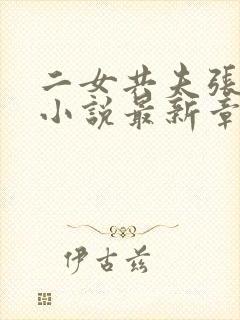 二女共夫張
小說最新章
伊古茲